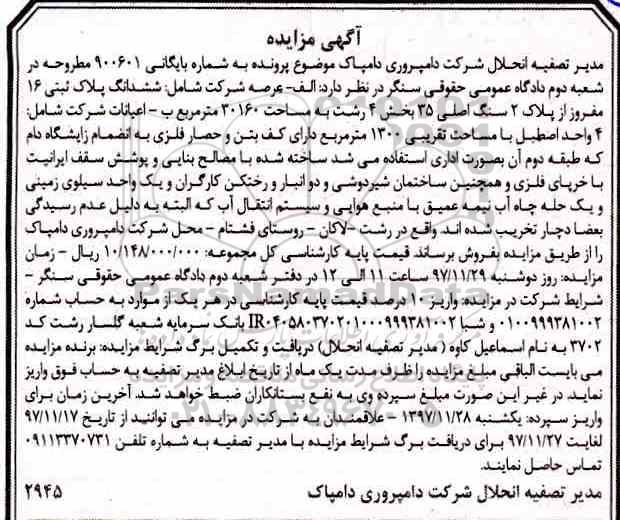 آگهی مزایده
مدیر تصفیه انحلال شرکت دامپروری دامپاک موضوع پرونده به شماره بایگانی ۹۰۰۶۰۱ مطروحه در
شعبه دوم دادگاه عمومی حقوقی سنگر در نظر دارد: الف- عرصه شرکت شامل: ششدانگ پلاک ثبتی ۱۶
مفروز از پلاک ۲ سنگ اصلی ۳۵ بخش ۴ رشت به مساحت ۳۰۱۶۰ مترمربع ب - اعیانات شرکت شامل:
۴ واحد اصطبل با مساحت تقریبی ۱۳۰۰ مترمربع دارای کف بتن و حصار فلزی به انضمام زایشگاه دام
که طبقه دوم آن بصورت اداری استفاده می شد ساخته شده با مصالح بنایی و پوشش سقف ایرانیت
با خرپای فلزی و همچنین ساختمان شیردوشی و دو انبار و رختکن کارگران و یک واحد سیلوی زمینی
و یک حلقه چاه آب نیمه عمیق با منبع هوایی و سیستم انتقال آب که البته به دلیل عدم رسیدگی
بعضا دچار تخریب شده اند. واقع در رشت -لاکان - روستای فشتام - محل شرکت دامپروری دامپاک
را از طریق مزایده بفروش برساند. قیمت پایه کارشناسی کل مجموعه: ۱۰/۱۴۸/۰۰۰/۰۰۰ ریال - زمان
مزایده: روز دوشنبه ۹۷/۱۱/۲۹ ساعت ۱۱ الی ۱۲ در دفتر شعبه دوم دادگاه عمومی حقوقی سنگر -
شرایط شرکت در مزایده: واریز ۱۰ درصد قیمت پایه کارشناسی در هر یک از موارد به حساب شماره
۰۱۰۰۹۹۹۳۸۱۰۰۲ و شبا IR۰۴۰۵۸۰۳۷۰۲۰۱۰۰۰۹۹۹۳۸۱۰۰۲ بانک سرمایه شعبه گلسار رشت کد
۳۷۰۲ به نام اسماعیل کاوه ( مدیر تصفیه انحلال) دریافت و تکمیل برگ شرایط مزایده: برنده مزایده
می بایست الباقی مبلغ مزایده را ظرف مدت یک ماه از تاریخ ابلاغ مدیر تصفیه به حساب فوق واریز
نماید. در غیر این صورت مبلغ سپرده وی به نفع بستانکاران ضبط خواهد شد. آخرین زمان برای
واریز سپرده: یکشنبه ۱۳۹۷/۱۱/۲۸ - علاقمندان به شرکت در مزایده می توانند از تاریخ ۹۷/۱۱/۱۷
لغایت ۹۷/۱۱/۲۷ برای دریافت برگ شرایط مزایده با مدیر تصفیه به شماره تلفن ۰۹۱۱۳۳۷۰۷۳۱
تماس حاصل نمایند.
مدیر تصفیه انحلال شرکت دامپروری دامپاک
۲۹۴۵
ParsNamadData